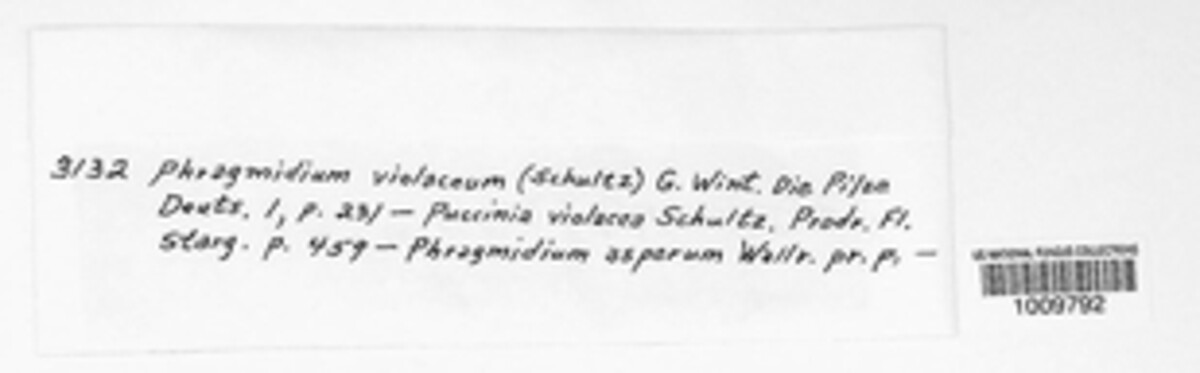 3132 Phragmidium violaceum (Schultz) G. Wint. Die Pilze
Deuts. 1, p. 231 — Puccinia violacea Schultz, Prodr. Fl.
Starg. p. 459 — Phragmidium asperum Wallr. pr. p. —
US NATIONAL FUNGUS COLLECTIONS
1009792